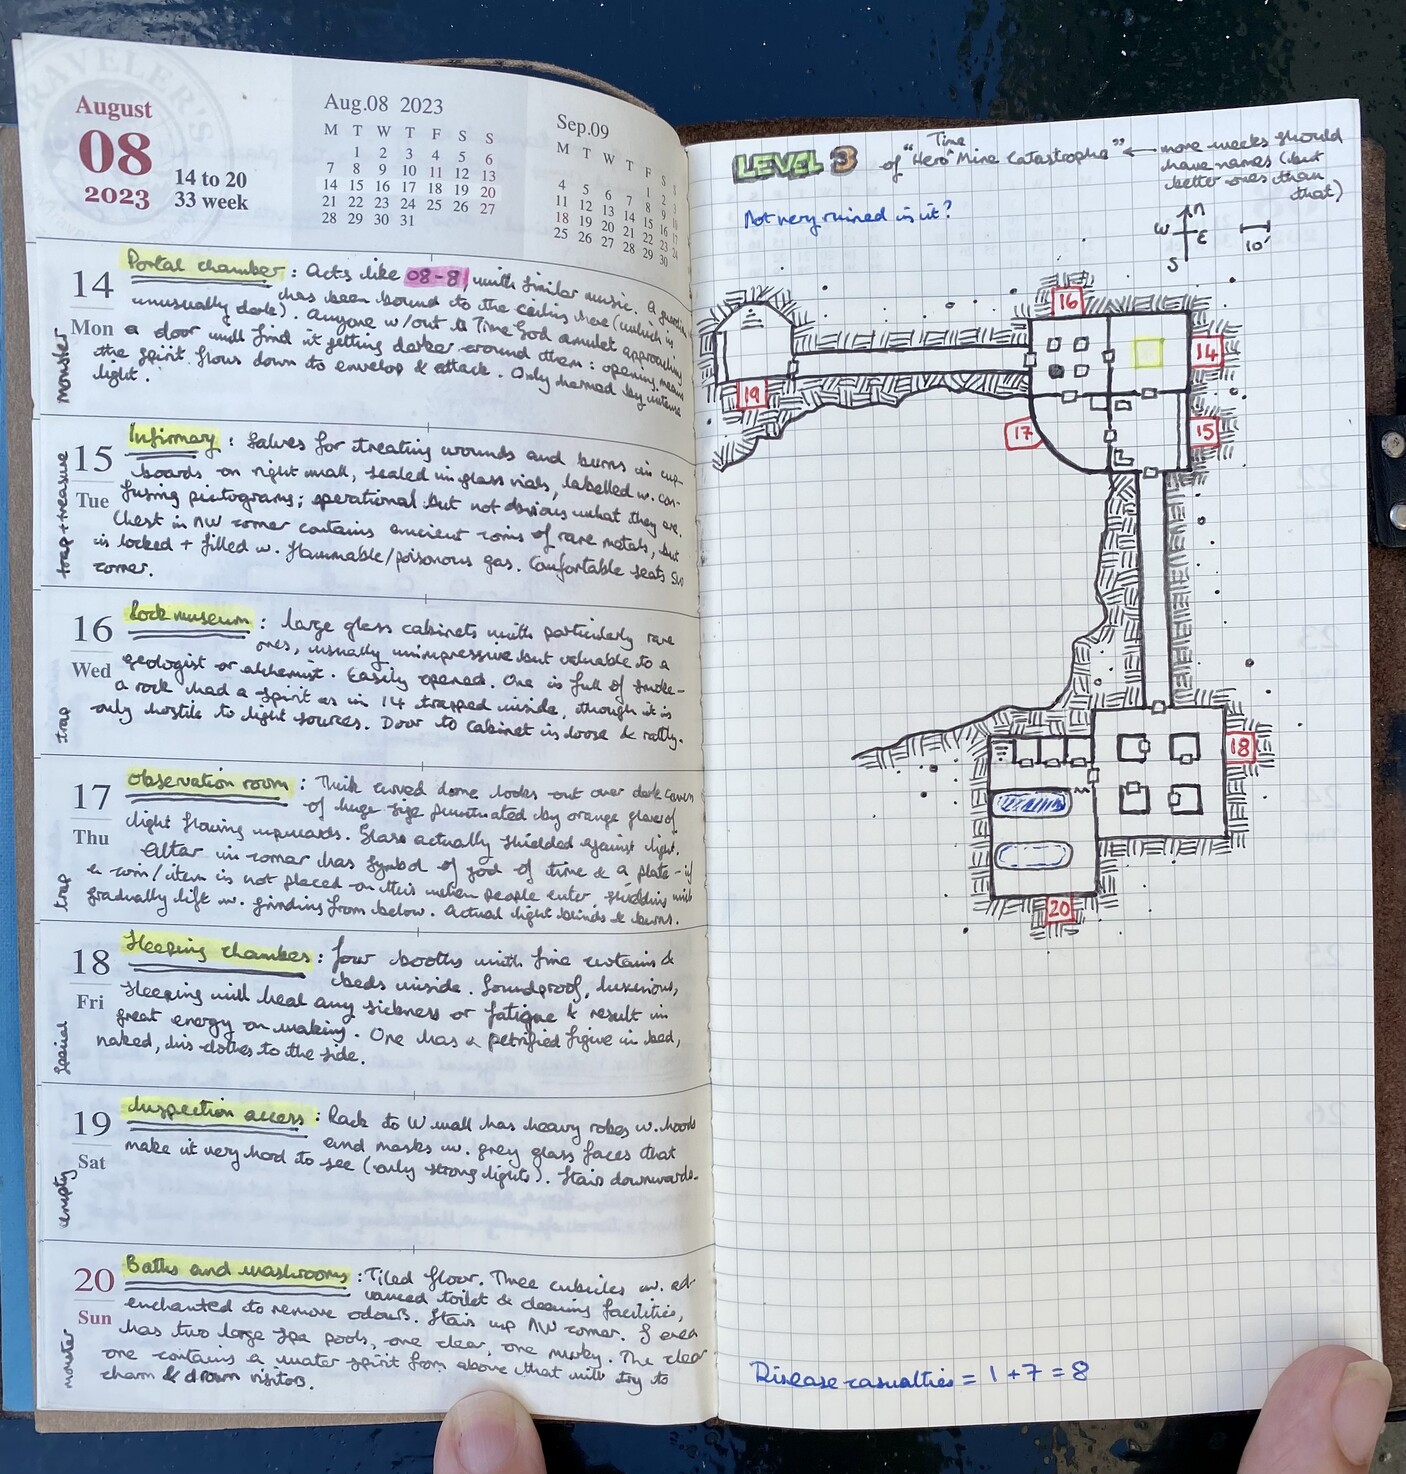 TRAVELER'S
August
08
2023
14 to 20
33 week
Aug.08 2023
M T W T F S S
1 2 3 4 5 6
7 8 9 10 11 12 13
14 15 16 17 18 19 20
21 22 23 24 25 26 27
28 29 30 31
Sep.09
M T W T F S S
1 2 3
4 5 6 7 8 9 10
11 12 13 14 15 16 17
18 19 20 21 22 23 24
25 26 27 28 29 30
14
Mon
monster
Portal chamber: Acts like 08-8, with similar music. A
has been bound to the ceiling here (which is
unusually dark). Anyone w/out a Time God amulet approaching
a door will find it getting darker around them: opening means
the spirit flows down to envelop & attack. Only harmed by intense
light.
15
Tue
trap + treasure
Infirmary: Salves for treating wounds and burns in cup-
boards on right wall, sealed in glass vials, labelled w. con-
fusing pictograms; operational but not obvious what they are.
Chest in NW corner contains ancient coins of rare metals, but
is locked + filled w. flammable/poisonous gas. Comfortable seats SW
corner.
16
Wed
trap
Rock museum: large glass cabinets with particularly rare
ones, usually unimpressive but valuable to a
geologist or alchemist. Easily opened. One is full of smoke-
a rock had a spirit as in 14 trapped inside, though it is
only hostile to light sources. Door to cabinet is loose & rattly.
17
Thu
trap
Observation room: Thick curved dome looks out over dark cavern
of huge size punctuated by orange glare of
light flowing upwards. Glass actually shielded against light.
Altar in corner has symbol of god of time & a plate - if
a coin/item is not placed on this when people enter, shielding will
gradually lift w. grinding from below. Actual light blinds & burns.
18
Fri
special
Sleeping chamber: four booths with fine curtains &
beds inside. Soundproof, luxurious,
Sleeping will heal any sickness or fatigue & result in
great energy on waking. One has a petrified figure in bed,
naked, his clothes to the side.
19
Sat
empty
Inspection access: Rack to W wall has heavy robes w. hoods
and masks w. grey glass faces that
make it very hard to see (only strong lights). Stairs downwards.
20
Sun
monster
Baths and washrooms: Tiled floor. Three cubicles w. ad-
vanced toilet & cleaning facilities,
enchanted to remove odours. Stairs up NW corner. S area
has two large spa pools, one clear, one murky. The clear
one contains a water spirit from above that will try to
charm & drown visitors.
LEVEL 3
Time
of "Hero Mine Catastrophe" ← more weeks should
have names (but
better ones than
that)
Not very ruined is it?
N
W E
S
10'
16
14
19
17
15
18
20
Disease casualties = 1 + 7 = 8